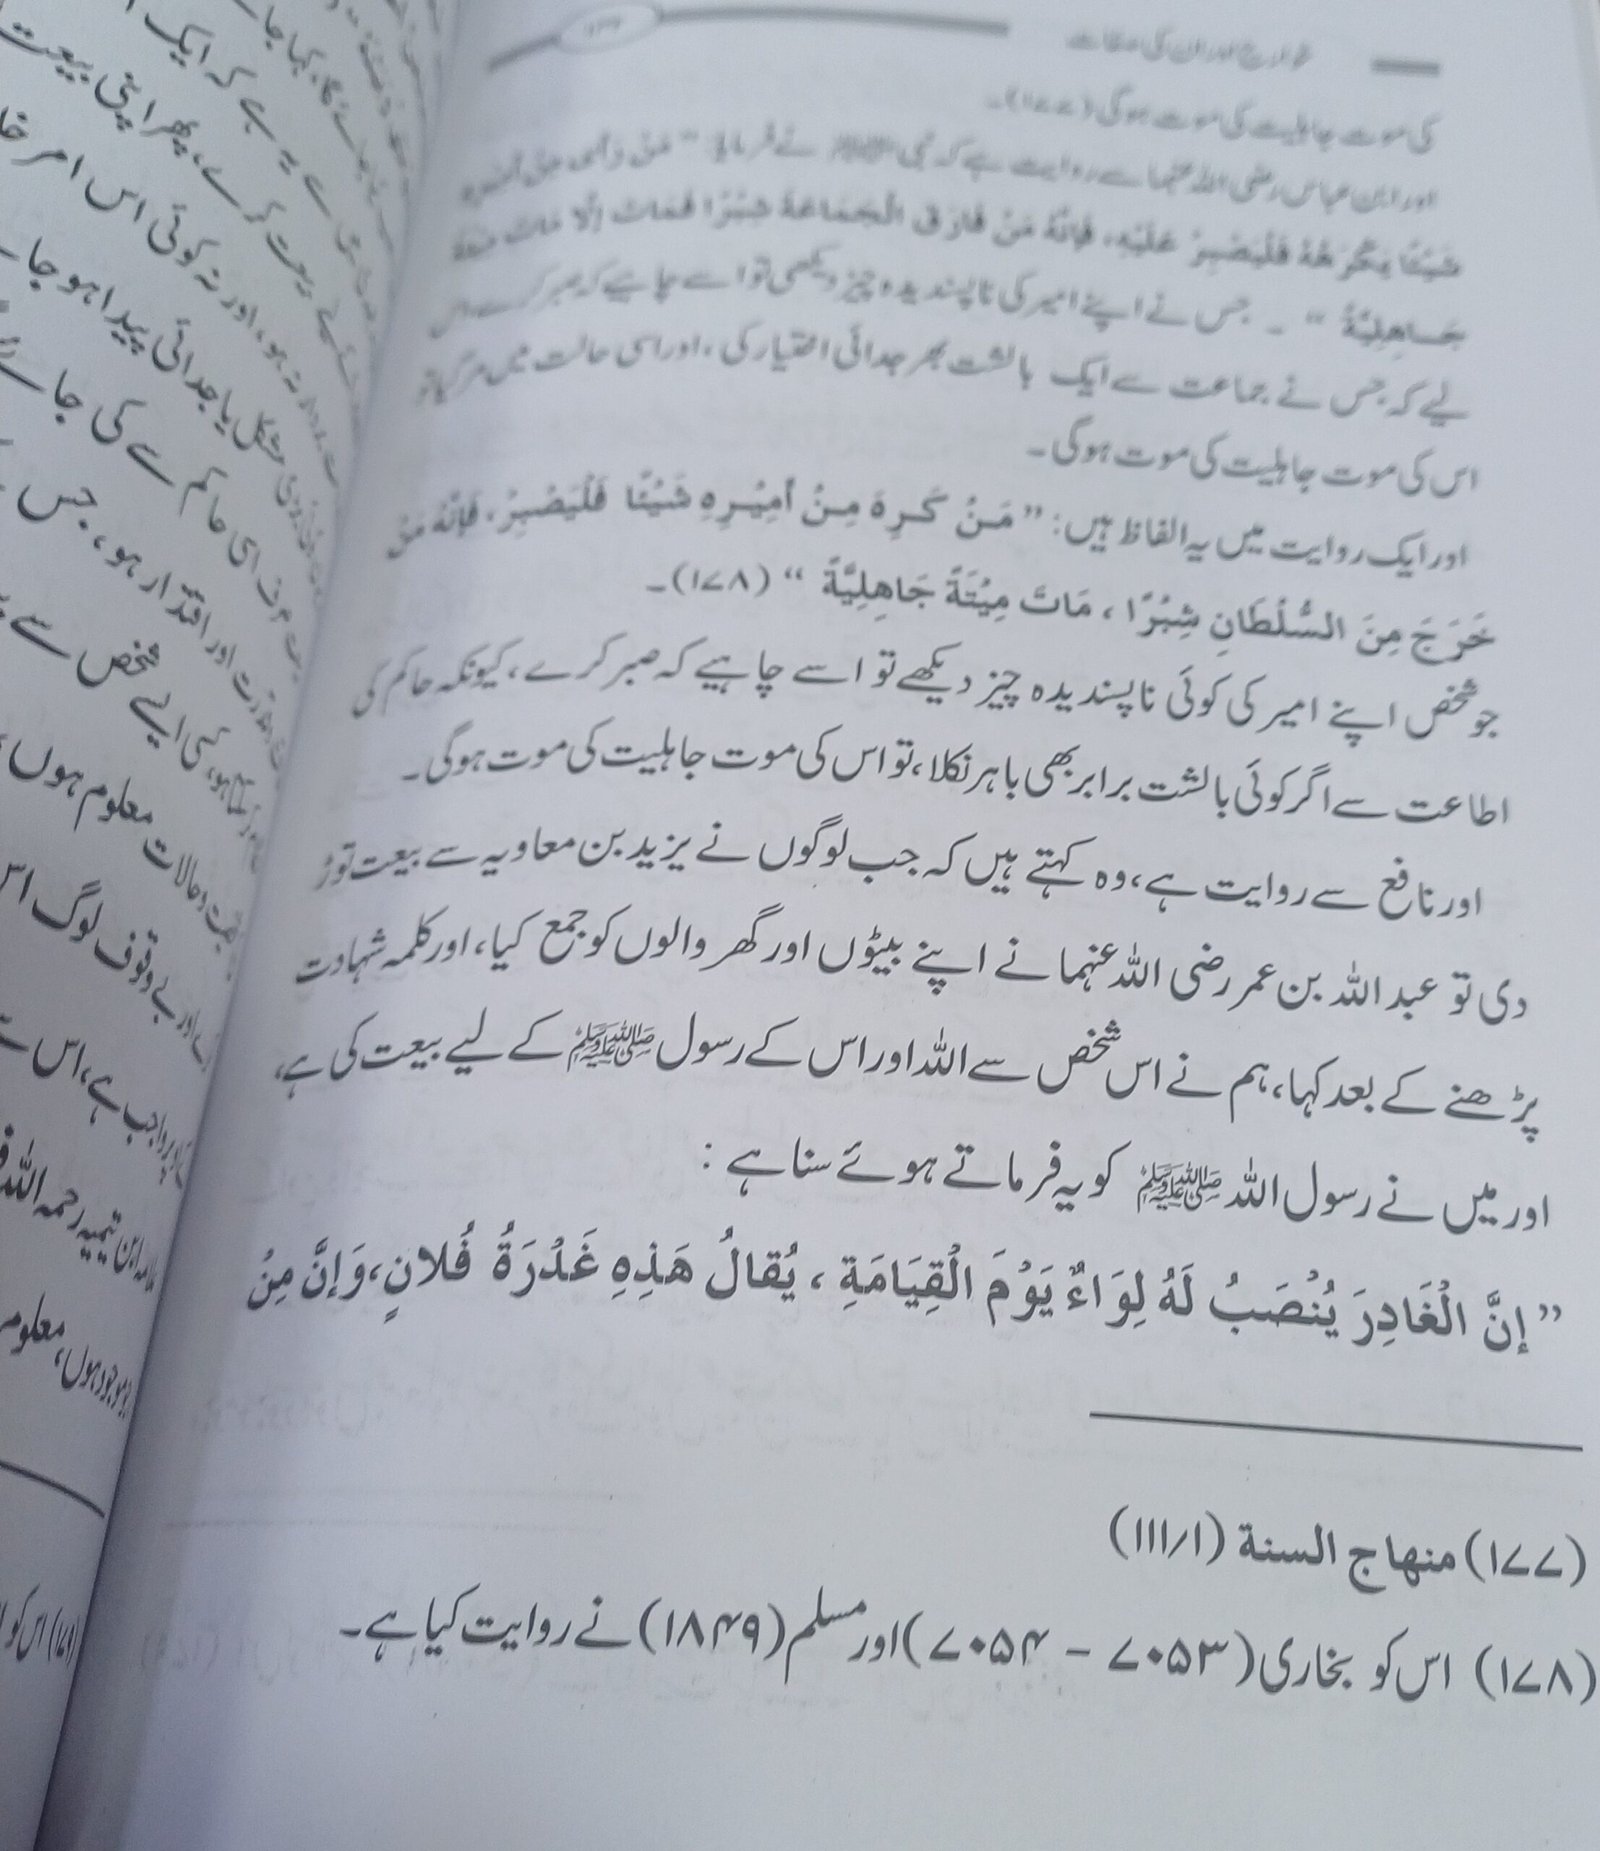 خوارج اور ان کی صفات
کی موت جاہلیت کی موت ہوگی (۱۷۷)۔
اور ابن عباس رضی اللہ عنہما سے روایت ہے کہ نبی ﷺ نے فرمایا: ” مَنْ رَأَى مِنْ أَمِيْرِهِ
شَيْئًا يَكْرَهُهُ فَلْيَصْبِرْ عَلَيْهِ، فَإِنَّهُ مَنْ فَارَقَ الْجَمَاعَةَ شِبْرًا فَمَاتَ إِلَّا مَاتَ مِيْتَةً
جَاهِلِيَّةً “ ۔ جس نے اپنے امیر کی ناپسندیدہ چیز دیکھی تو اسے چاہیے کہ صبر کرے، اس
لیے کہ جس نے جماعت سے ایک بالشت بھر جدائی اختیار کی، اور اسی حالت میں مر گیا تو
اس کی موت جاہلیت کی موت ہوگی۔
اور ایک روایت میں یہ الفاظ ہیں: ” مَنْ كَرِهَ مِنْ أَمِيْرِهِ شَيْئًا فَلْيَصْبِرْ، فَإِنَّهُ مَنْ
خَرَجَ مِنَ السُّلْطَانِ شِبْرًا ، مَاتَ مِيْتَةً جَاهِلِيَّةً “ (۱۷۸)۔
جو شخص اپنے امیر کی کوئی ناپسندیدہ چیز دیکھے تو اسے چاہیے کہ صبر کرے، کیونکہ حاکم کی
اطاعت سے اگر کوئی بالشت برابر بھی باہر نکلا، تو اس کی موت جاہلیت کی موت ہوگی۔
اور نافع سے روایت ہے، وہ کہتے ہیں کہ جب لوگوں نے یزید بن معاویہ سے بیعت توڑ
دی تو عبد اللہ بن عمر رضی اللہ عنہما نے اپنے بیٹوں اور گھر والوں کو جمع کیا، اور کلمہ شہادت
پڑھنے کے بعد کہا، ہم نے اس شخص سے اللہ اور اس کے رسول ﷺ کے لیے بیعت کی ہے،
اور میں نے رسول اللہ ﷺ کو یہ فرماتے ہوئے سنا ہے :
” إِنَّ الْغَادِرَ يُنْصَبُ لَهُ لِوَاءٌ يَوْمَ الْقِيَامَةِ ، يُقَالُ هَذِهِ غَدْرَةُ فُلانٍ، وَإِنَّ مِنْ
(۱۷۷) منهاج السنة (۱/۱۱۱)
(۱۷۸) اس کو بخاری (۷۰۵۳ - ۷۰۵۴) اور مسلم (۱۸۴۹) نے روایت کیا ہے۔
ہے کہ ایک
بیعت کرے، پھر اپنی بیعت
نہ ہو، اور نہ کوئی اس امر
مشکل یا جدائی پیدا ہو جا
اسی حاکم سے کی جا
اور اقتدار ہو، جس
ہو، کسی ایسے شخص سے
وحالات معلوم ہوں،
اور بے وقوف لوگ اس
واجب ہے، اس
ابن تیمیہ رحمہ اللہ
موجود ہوں، معلوم
اس کو